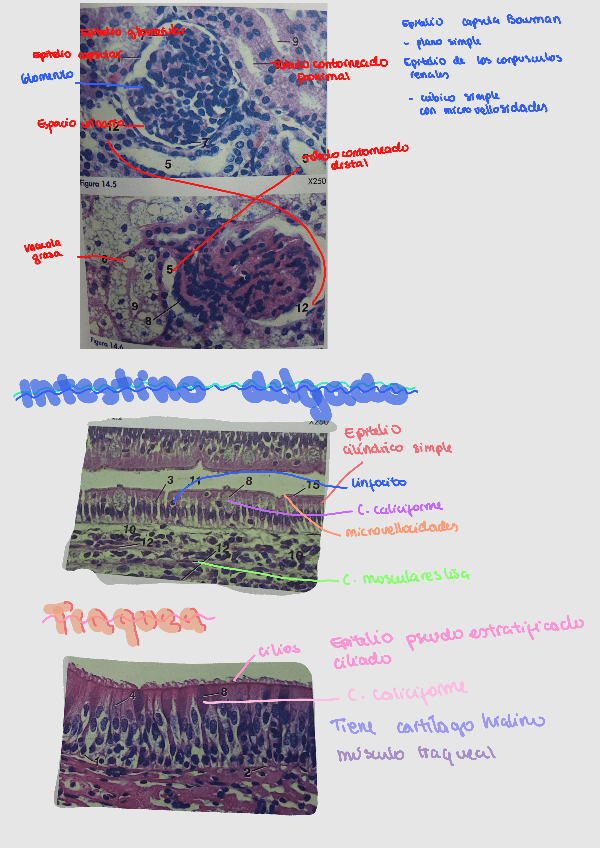 Epitelio glomerular
Epitelio capsular
Glomerulo
Espacio urinario
7
9
Tubulo contorneado
proximal
12
7
5
5
Tubulo contorneado
distal
Figura 14.5
X250
Epitelio capsula Bowman
- plano simple
Epitelio de los corpusculos
renales
- cúbico simple
con microvellosidades
Vacuola
grasa
6
5
9
8
12
Figura 14.6
Intestino delgado
X250
3
11
8
15
10
12
12
10
Epitelio
cilíndrico simple
linfocito
C. caliciforme
microvellocidades
C. musculares lisa
Traquea
cilios
Epitelio pseudo estratificado
ciliado
C. caliciforme
Tiene cartílago hialino
músculo traqueal
4
8
1
2